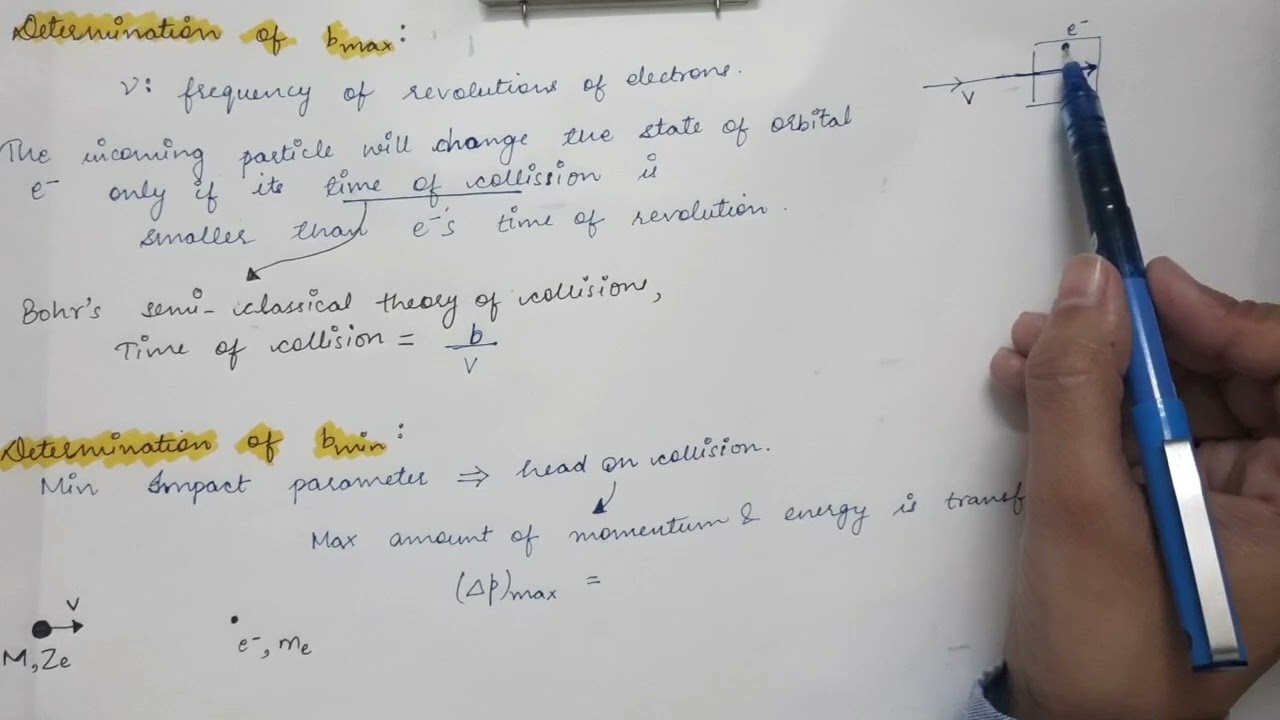 Determination of bmax:
e⁻
ν: frequency of revolutions of electrons.
V
The incoming particle will change the state of orbital
e⁻ only if its time of collission is
smaller than e⁻'s time of revolution.
Bohr's semi-classical theory of collisions,
Time of collision = b/V
Determination of bmin:
Min Impact parameter ⇒ head on collision.
Max amount of momentum & energy is transf
(Δp)max =
V
M, Ze
e⁻, me